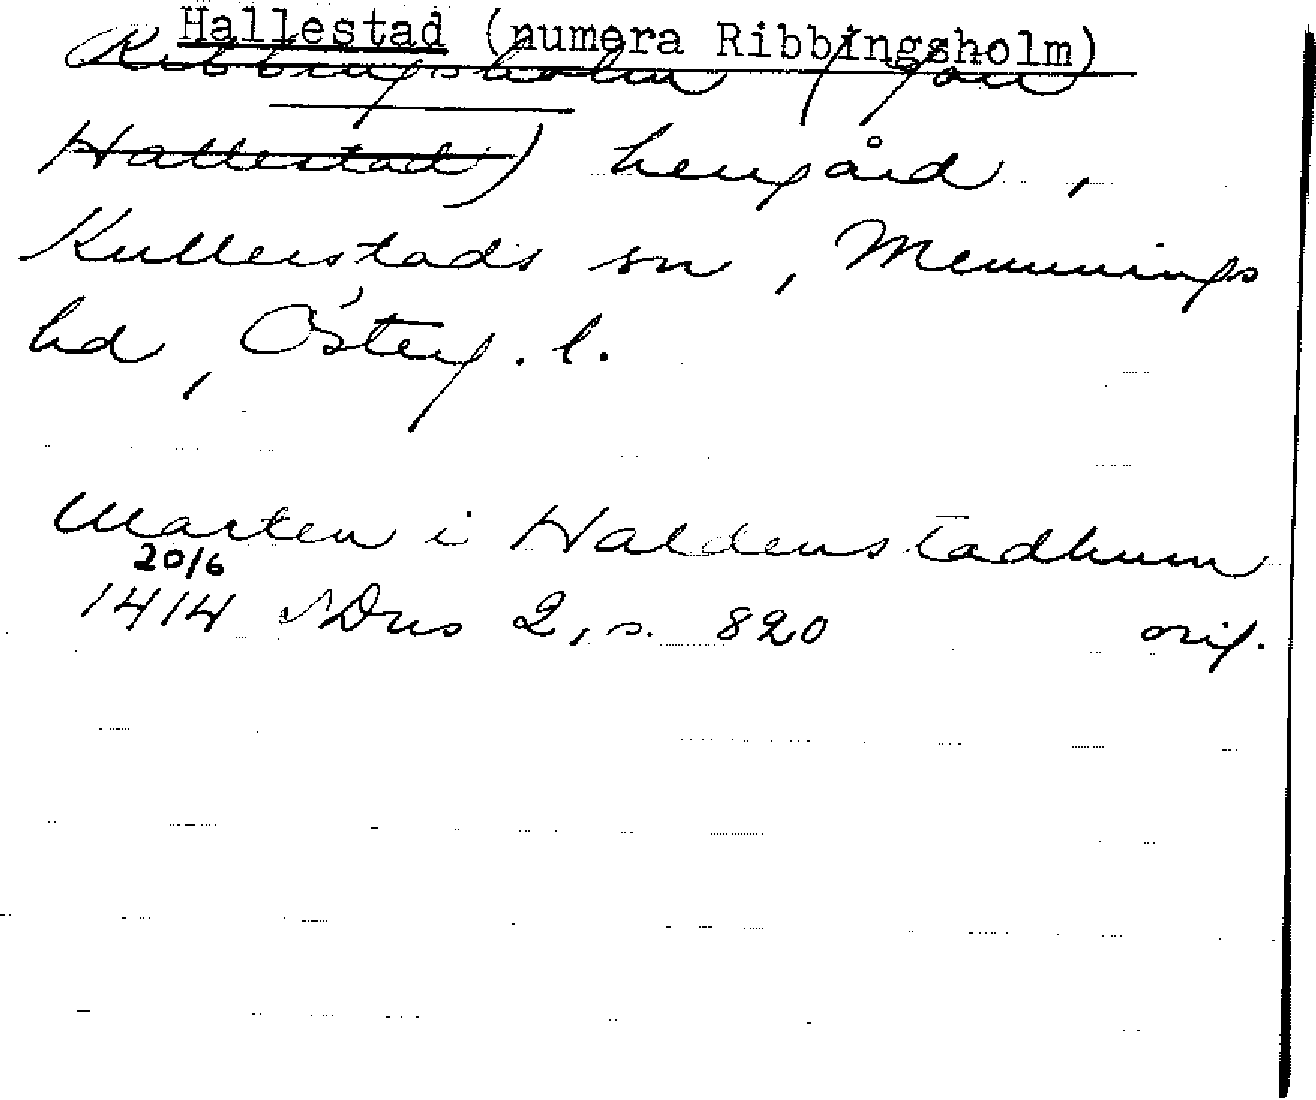 Hallestad (numera Ribbingsholm)
Ribbingsholm (f
Hallestad) herrgård,
Kullerstads sn, Memmings
hd, Österg. l.
Marten i Haldenstadhum
20/6
1414 SDns 2, s. 820 orig.